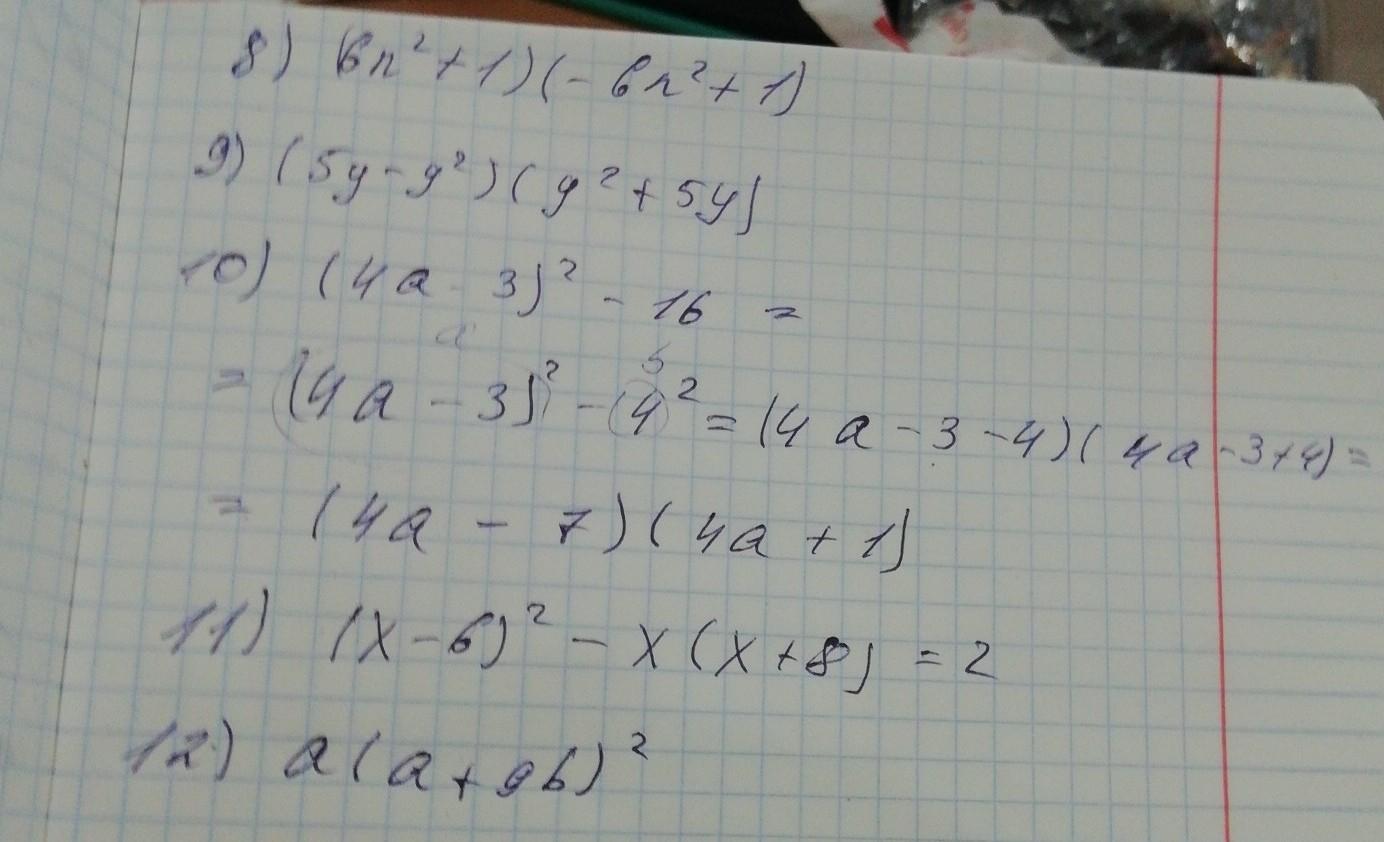 8) (6n²+1)(-6n²+1)
9) (5y-y²)(y²+5y)
10) (4a-3)² - 16 =
a 5
= (4a-3)² - (4)² = (4a-3-4)(4a-3+4) =
= (4a - 7)(4a + 1)
11) (x-6)² - x(x+8) = 2
12) a(a+9b)²